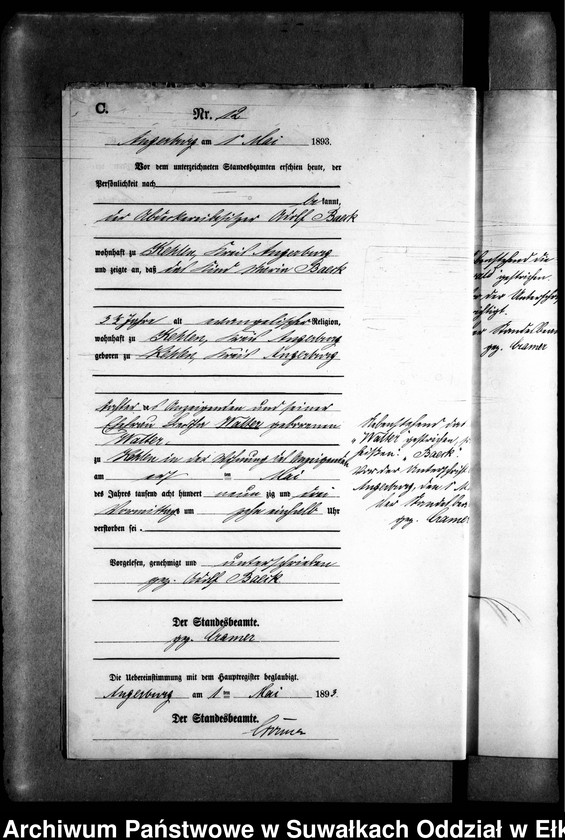 C.
Nr. 12
Angerburg am 1 Mai 1893.
Vor dem unterzeichneten Standesbeamten erschien heute, der
Persönlichkeit nach
be kannt,
der Adolf Baeck
wohnhaft zu Kehlen, Kreis Angerburg
und zeigte an, daß das Kind Maria Baeck
alt evangelischer Religion,
wohnhaft zu Kehlen, Kreis Angerburg
geboren zu Kehlen, Kreis Angerburg
Tochter des Anzeigenden und seiner
Ehefrau Walter geborenen
Walter,
zu Kehlen in der Wohnung des Anzeigenden
am ten Mai
des Jahres tausend acht hundert neun zig und drei
Vormittags um zehn einhalb Uhr
verstorben sei.
Vorgelesen, genehmigt und unterschrieben
gez. Adolf Baeck
Der Standesbeamte.
gez. Cramer
Die Uebereinstimmung mit dem Hauptregister beglaubigt.
Angerburg am 1 ten Mai 1893
Der Standesbeamte.
Cramer
Nebenstehend das
"Walter" gestrichen
"Baeck"
Vor der Unterschrift
Angerburg, den 1 M
der Standesbea
gez. Cramer
gestrichen
der Unterschr
gez. Cramer
Archiwum Państwowe w Suwałkach Oddział w Ełk